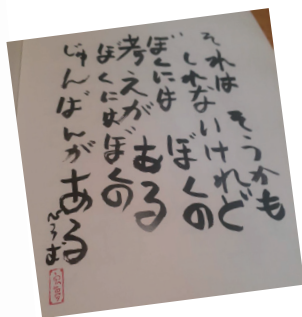 それは そうかも
しれないけれど
ぼくには ぼくの
考えが ある
ぼくにはぼくの
じゅんばんがある